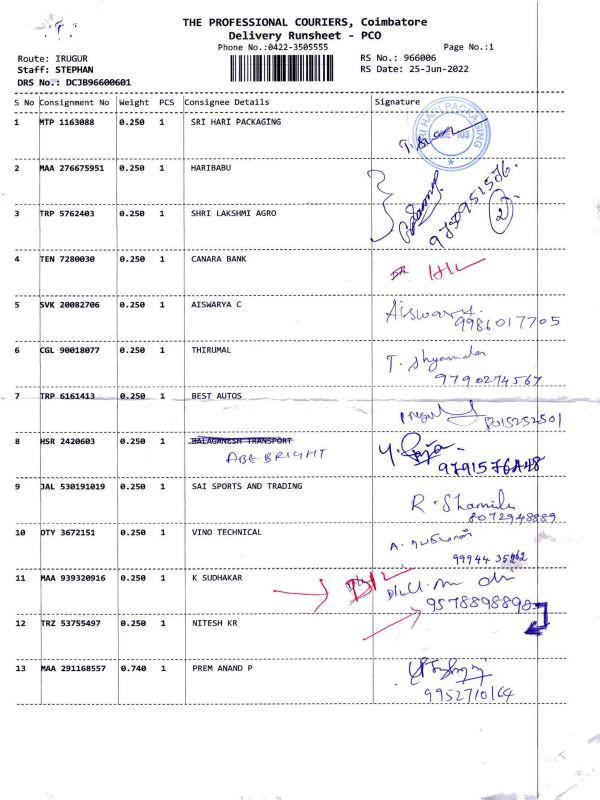 THE PROFESSIONAL COURIERS, Coimbatore
Delivery Runsheet - PCO
Phone No.:0422-3505555
Page No.:1
Route: IRUGUR
RS No.: 966006
Staff: STEPHAN
RS Date: 25-Jun-2022
DRS No.: DCJB96600601
S No Consignment No Weight PCS Consignee Details Signature
1 MTP 1163088 0.250 1 SRI HARI PACKAGING
SRI HARI PACKAGING
2 MAA 276675951 0.250 1 HARIBABU
9750951576
2
3 TRP 5762403 0.250 1 SHRI LAKSHMI AGRO
4 TEN 7280030 0.250 1 CANARA BANK
5 SVK 20082706 0.250 1 AISWARYA C
9986017705
6 CGL 90018077 0.250 1 THIRUMAL
T. Shyamala
9790274567
7 TRP 6161413 0.250 1 BEST AUTOS
8015252501
8 HSR 2420603 0.250 1 BALAGANESH TRANSPORT
ABE BRIGHT
9 JAL 530191019 0.250 1 SAI SPORTS AND TRADING
R. Shamili
8072948889
10 OTY 3672151 0.250 1 VINO TECHNICAL
11 MAA 939320916 0.250 1 K SUDHAKAR
D/L
9578898898
12 TRZ 53755497 0.250 1 NITESH KR
13 MAA 291168557 0.740 1 PREM ANAND P
9952710164